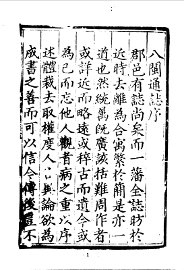 八閩通誌序
郡邑有誌尚矣而一藩全誌昉於
近時去離為合寓繁於簡是亦一
道也然統萬既廣該括難周作者
或詳近而略遠或稡古而遺今或
為己而忘他人觀者病之重以紀
述體裁去取權度人心異論欲為
成書之善而可以信今傳後豈不
1